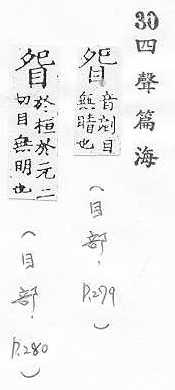 30四聲篇海
眢音剜目
無睛也
(目部.P.279)
眢於桓於元二
切目無明也
(目部.P.280)